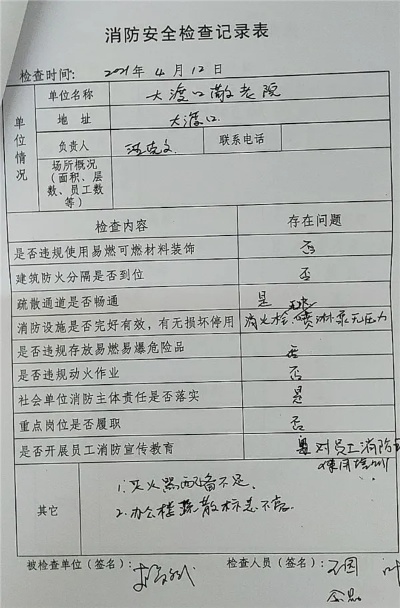 消防安全检查记录表
检查时间: 2021年4月12日
单位情况
单位名称 大渡口敬老院
地 址 大渡口
负责人 联系电话
场所概况(面积、层数、员工数等)
检查内容 存在问题
是否违规使用易燃可燃材料装饰 否
建筑防火分隔是否到位 否
疏散通道是否畅通 是
消防设施是否完好有效,有无损坏停用 消火栓、喷淋泵无压力
是否违规存放易燃易爆危险品 否
是否违规动火作业 否
社会单位消防主体责任是否落实 是
重点岗位是否履职 否
是否开展员工消防宣传教育 对员工消防
使用培训
其它
1.灭火器配备不足。
2.办公楼疏散标志不
被检查单位(签名): 检查人员(签名):